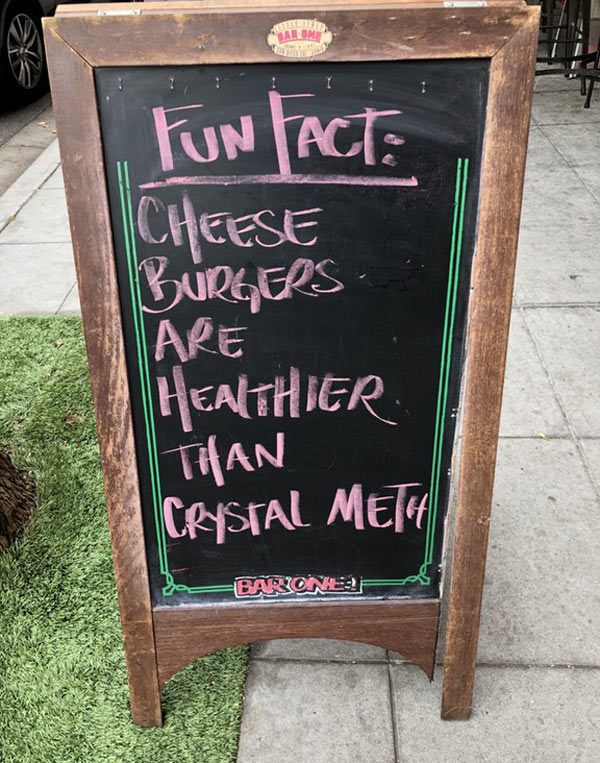 BAR·ONE
FUN FACT:
CHEESE
BURGERS
ARE
HEALTHIER
THAN
CRYSTAL METH
BAR ONE